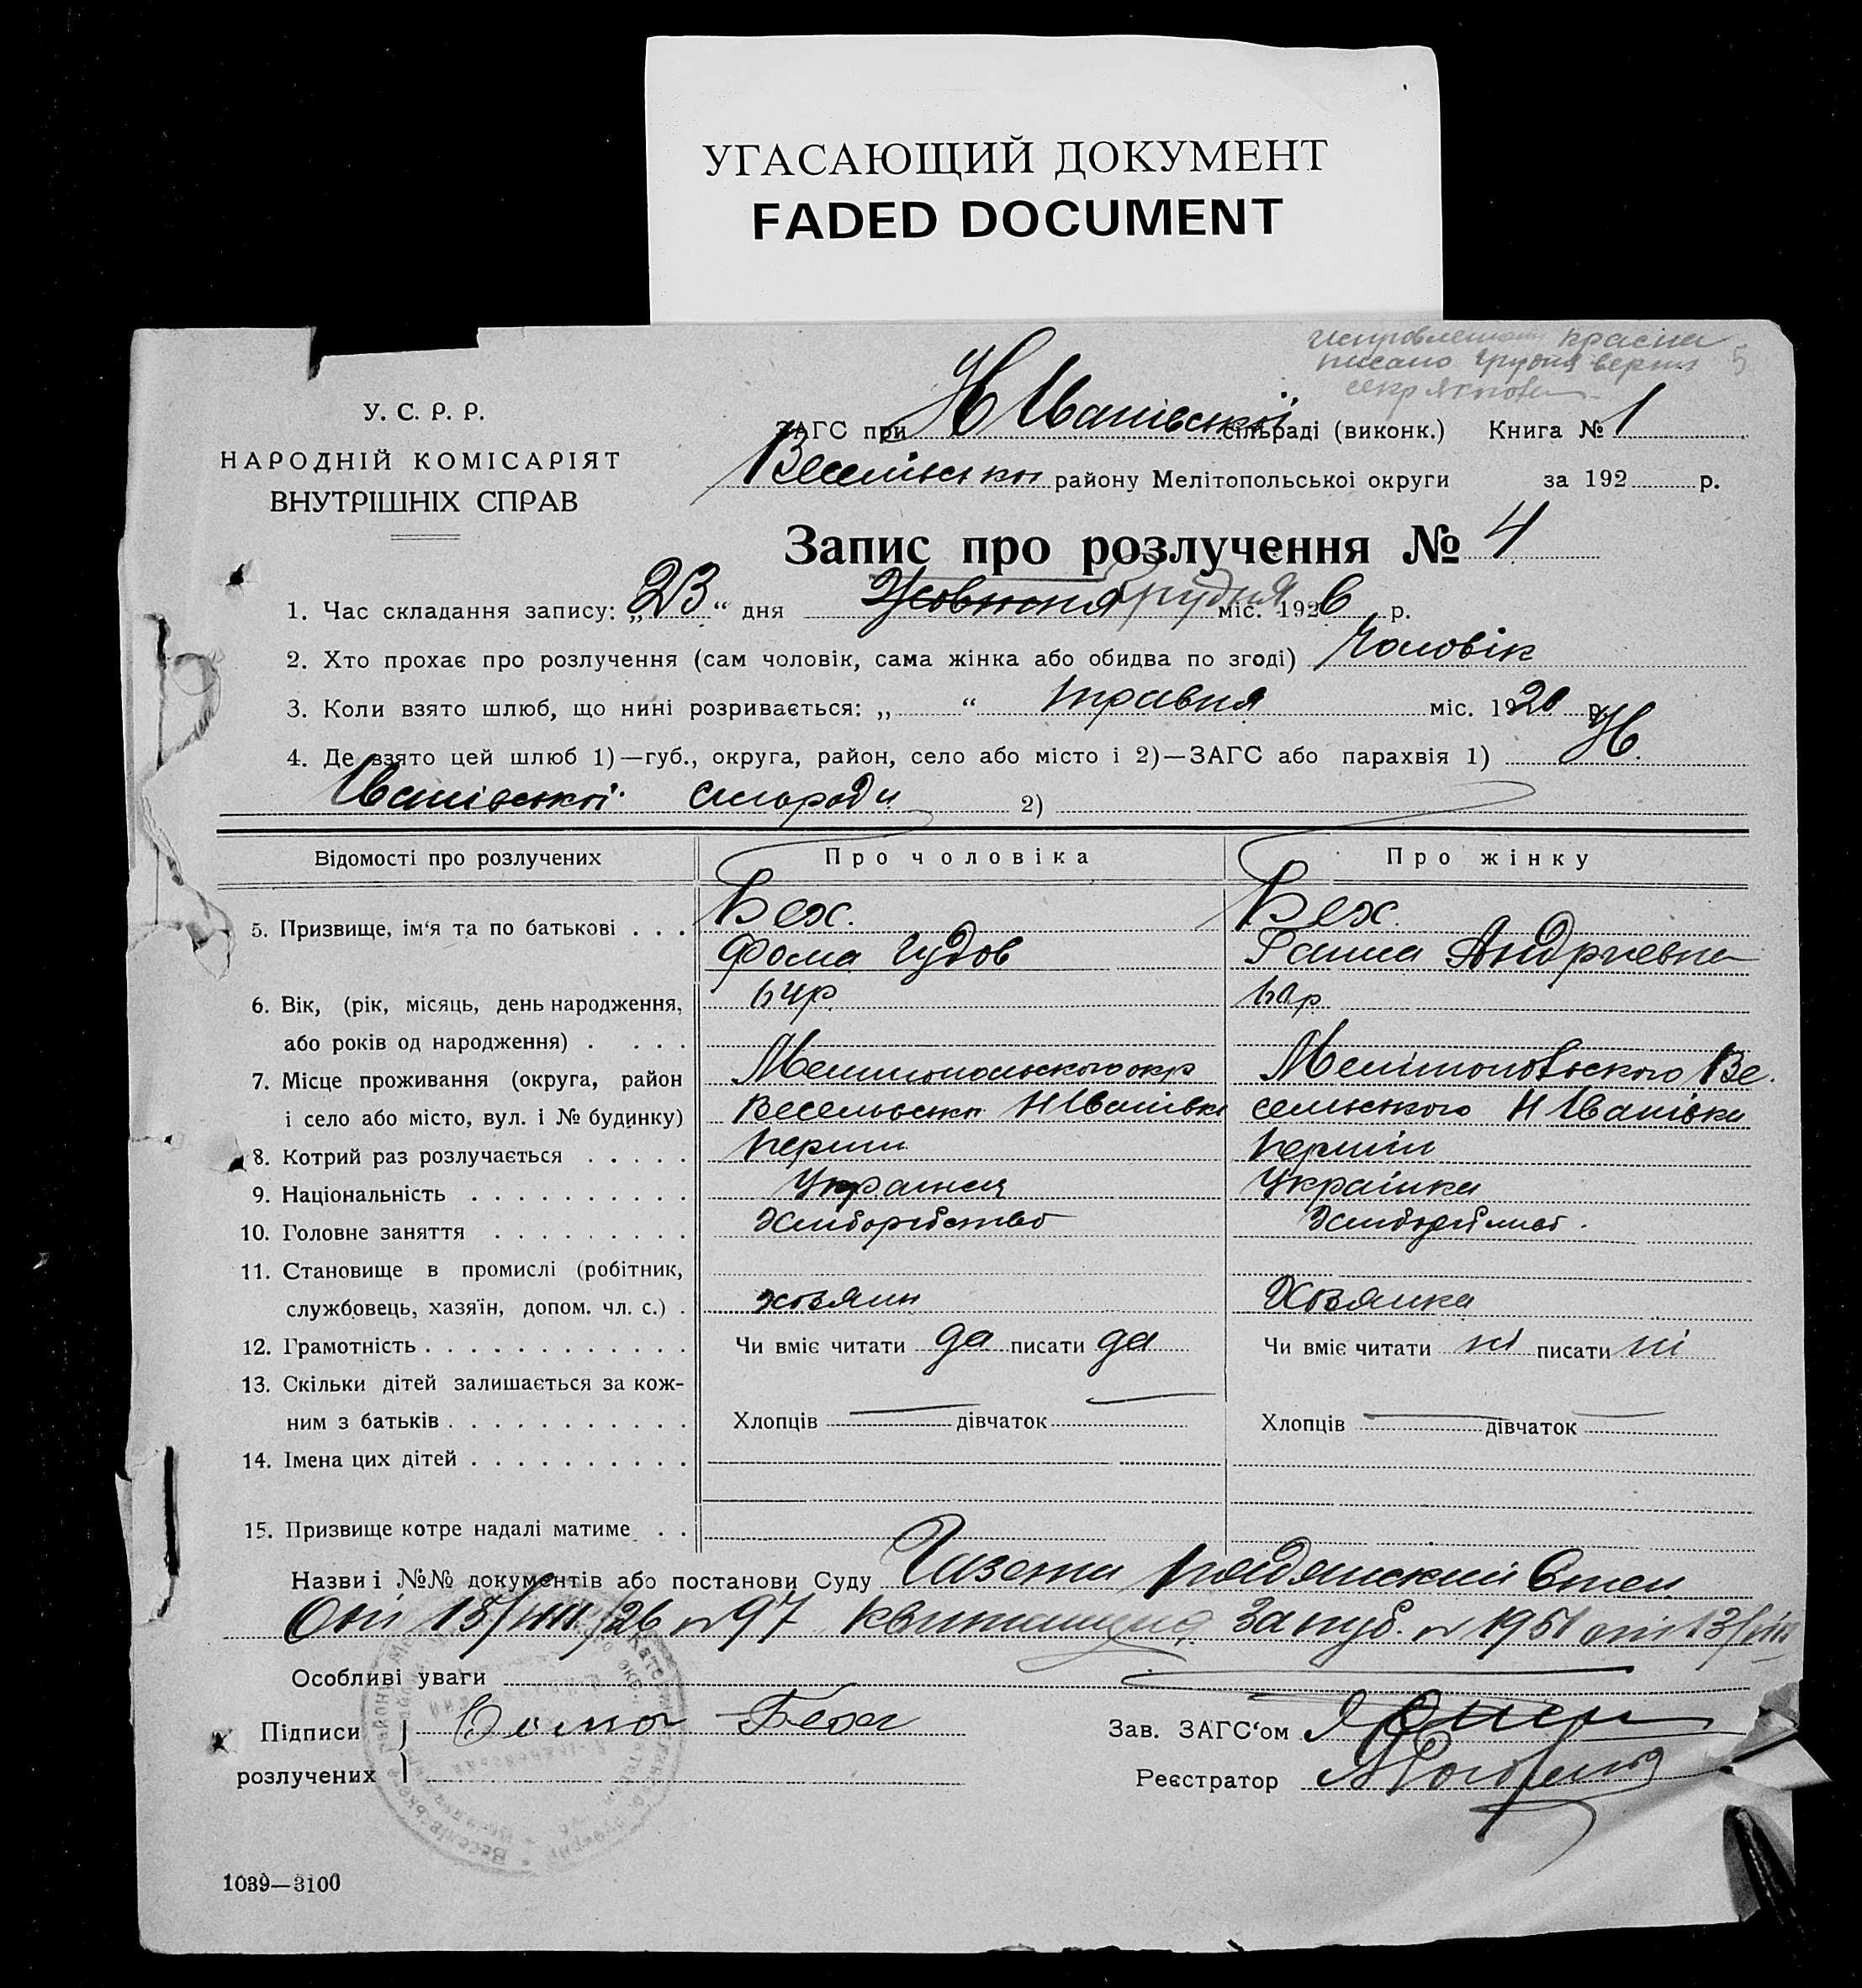 УГАСАЮЩИЙ ДОКУМЕНТ
FADED DOCUMENT
5
У. С. Р. Р.
НАРОДНІЙ КОМІСАРІЯТ
ВНУТРІШНІХ СПРАВ
ЗАГС при Н Іванівській сільраді (виконк.) Книга № 1
району Мелітопольської округи за 192 р.
Запис про розлучення № 4
1. Час складання запису: „23“ дня Жовтня Грудня міс. 1926 р.
2. Хто прохає про розлучення (сам чоловік, сама жінка або обидва по згоді) Чоловік
3. Коли взято шлюб, що нині розривається: „ “ травня міс. 1920 р.
4. Де взято цей шлюб 1)—губ., округа, район, село або місто і 2)—ЗАГС або парахвія 1) Н.
Іванівської сільради 2)
Відомості про розлучених Про чоловіка Про жінку
5. Призвище, ім‘я та по батькові . . . Бех. Бех.
Фома Ганна Андриевна
6. Вік, (рік, місяць, день народження,
або років од народження) . . . .
7. Місце проживання (округа, район Мелитопольского окр Мелітопольского Ве
і село або місто, вул. і № будинку) Н Іванівка сельського Н Іванівка
8. Котрий раз розлучається . . . . . перший
9. Національність . . . . . . . . . . Українка
10. Головне заняття . . . . . . . . . Хліборобство
11. Становище в промислі (робітник,
службовець, хазяїн, допом. чл. с.) . хозяин Хозяйка
12. Грамотність . . . . . . . . . . . . Чи вміє читати да писати да Чи вміє читати ні писати ні
13. Скільки дітей залишається за кож-
ним з батьків . . . . . . . . . . . Хлопців — дівчаток — Хлопців — дівчаток —
14. Імена цих дітей . . . . . . . . . .
15. Призвище котре надалі матиме . .
Назви і №№ документів або постанови Суду Газета Степ
15/VIII/26 № 97 квитанция за пуб. № 1951 от 13/VIII
Особливі уваги
Підписи Фома Бех Зав. ЗАГС‘ом
розлучених Реєстратор
1039—3100